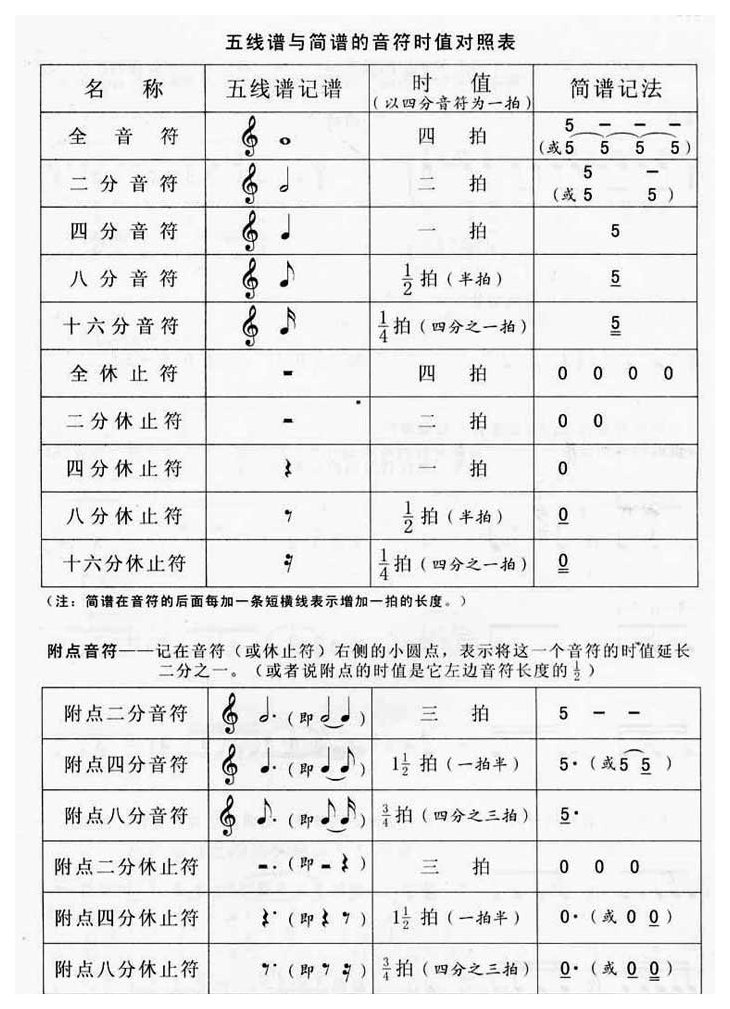 五线谱与简谱的音符时值对照表
名 称 五线谱记谱 时 值 (以四分音符为一拍) 简谱记法
全 音 符 四 拍 5 – – – (或5 5 5 5)
二分音符 二 拍 5 – (或5 5)
四分音符 一 拍 5
八分音符 1/2拍(半拍) 5
十六分音符 1/4拍(四分之一拍) 5
全休止符 四 拍 0 0 0 0
二分休止符 二 拍 0 0
四分休止符 一 拍 0
八分休止符 1/2拍(半拍) 0
十六分休止符 1/4拍(四分之一拍) 0
(注:简谱在音符的后面每加一条短横线表示增加一拍的长度。)
附点音符——记在音符(或休止符)右侧的小圆点,表示将这一个音符的时值延长
二分之一。(或者说附点的时值是它左边音符长度的1/2)
附点二分音符 (即 ) 三 拍 5 – –
附点四分音符 (即 ) 1 1/2拍(一拍半) 5·(或5 5)
附点八分音符 (即 ) 3/4拍(四分之三拍) 5·
附点二分休止符 (即 ) 三 拍 0 0 0
附点四分休止符 (即 ) 1 1/2拍(一拍半) 0·(或0 0)
附点八分休止符 (即 ) 3/4拍(四分之三拍) 0·(或0 0)